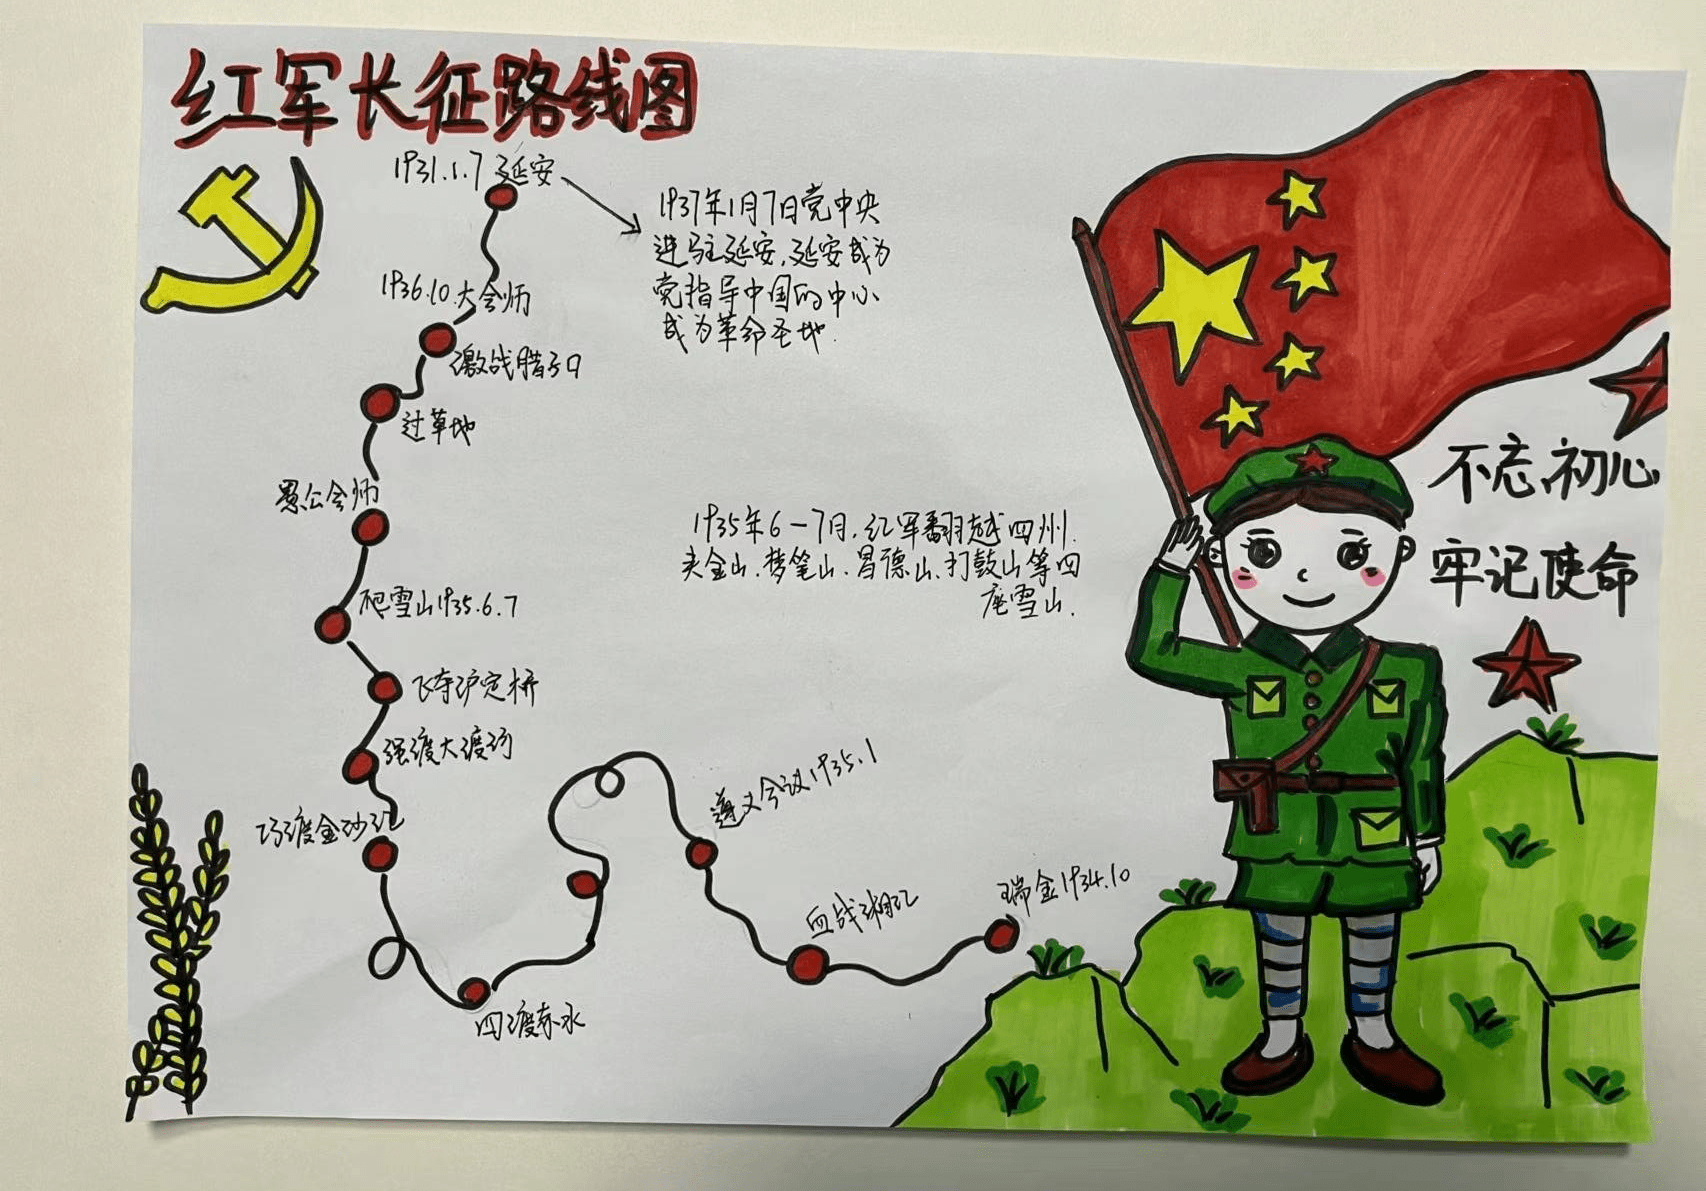 红军长征路线图
1931.1.7 延安
1937年1月7日党中央
进驻延安,延安成为
党指导中国的中心
成为革命圣地.
1936.10.大会师
激战腊子口
过草地
愚公会师
1935年6-7月,红军翻越四州.
夹金山.梦笔山.昌德山.打鼓山等四
座雪山.
爬雪山1935.6.7
飞夺沪定桥
强渡大渡河
巧渡金沙江
四渡赤水
遵义会议1935.1
血战湘江
瑞金1934.10
不忘初心
牢记使命